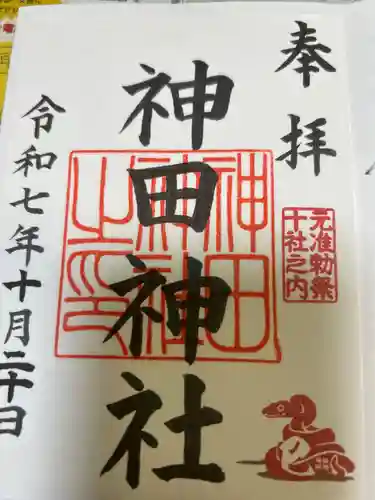 奉拝
元准勅祭
十社之内
神田神社
神田
神社
之印
令和七年十月二十日
巳